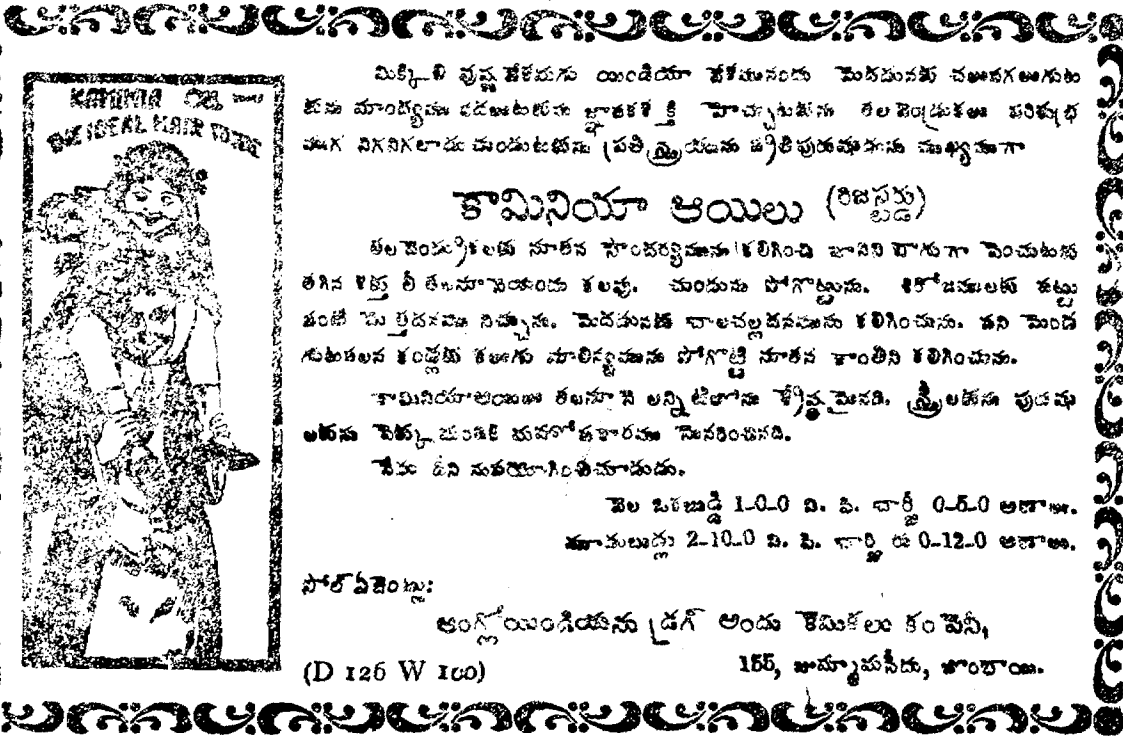 KAMINIA OIL
THE IDEAL HAIR TONIC
మిక్కిలి వుష్ణ దేశమగు యిండియా దేశమునందు మెదడునకు చలువగలుగుట
కును మాంద్యము వదలుటకును జ్ఞాపకశక్తి హెచ్చుటకును తలవెండ్రుకలు పరిశుభ్ర
ముగ నిగనిగలాడు చుండుటకును ప్రతిస్త్రీయును ప్రతిపురుషుడును ముఖ్యముగా
కామినియా ఆయిలు (రిజిస్టర్డు)
తలవెండ్రుకలకు నూతన సౌందర్యమును కలిగించి వానిని బాగుగా పెంచుటకు
తగిన శక్తు లీ తలనూనెయందు కలవు. చుండును పోగొట్టును. శిరోజములకు పట్టు
వంటి మెత్తదనము నిచ్చును. మెదడునకు చాలచల్లదనమును కలిగించును. పని మెండ
గుటవలన కండ్లకు కలుగు మాలిన్యమును పోగొట్టి నూతన కాంతిని కలిగించును.
కామినియాఆయిలు తలనూనె లన్నిటిలోను శ్రేష్ఠమైనది. స్త్రీలకును పురుషు
లకును పెక్కుమందికి మహోపకారము నొనరించినది.
నేడు దీని నుపయోగించిచూడుడు.
వెల ఒకబుడ్డి 1-0-0 వి. పి. చార్జీ 0-5-0 అణాలు.
మూడుబుడ్లు 2-10-0 వి. పి. చార్జి రు 0-12-0 అణాలు.
సోల్ ఏజెంట్లు:
ఆంగ్లోయిండియను డ్రగ్ అందు కెమికలు కంపెనీ,
155, జుమ్మామసీదు, బొంబాయి.
(D 126 W 100)